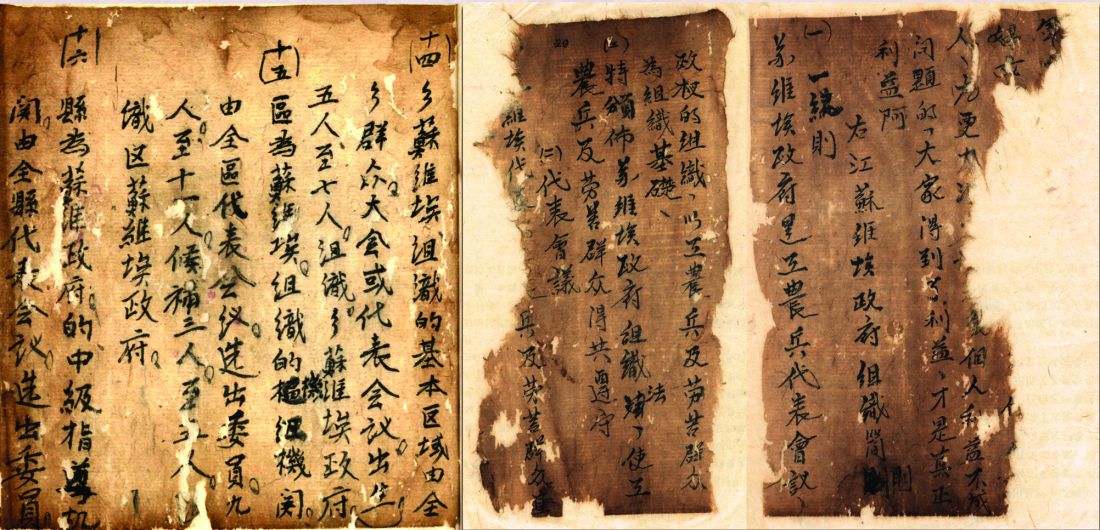 個人利益不成
问題的、大家得到了利益、才是真正
利益阿
右江蘇維埃政府組織简則
(一) 一總則
苏維埃政府是工農兵代表會議、
政权的組織、以工農兵及劳苦群众
為組織基礎、
特頒佈苏維埃政府組織法、使工
農兵及劳苦群众得共遵守
(二)代表會議
維埃代 兵及劳苦群众
(十四) 乡蘇維埃組織的基本区域由全
乡群众大会或代表会议。出生
五人至七人。組織。乡蘇維埃政府。
(十五) 區為蘇維埃。組織的機関。
由全區代表会议选出委員九
人。至十一人候補三人。至五人。
織区蘇維埃政府。
(十六) 縣為蘇維政府。的中級指導机
関。由全縣代表会议。选出委員。